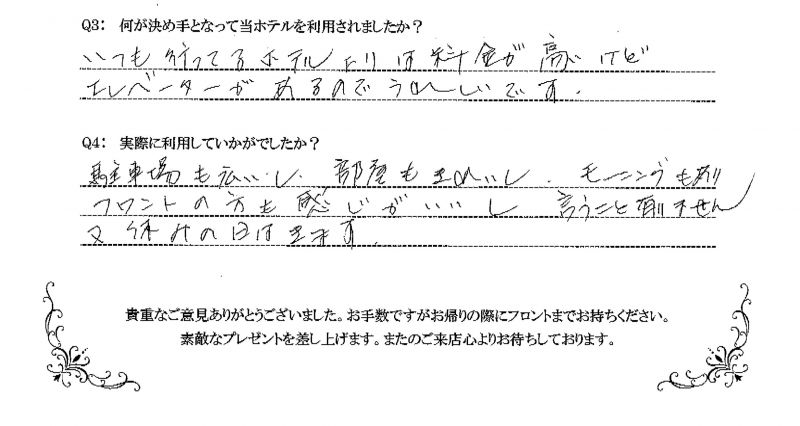 Q3： 何が決め手となって当ホテルを利用されましたか？
いつも行ってるホテルよりは料金が高いけど
エレベーターがあるのでうれしいです．
Q4： 実際に利用していかがでしたか？
駐車場も広いし、部屋もきれいし、モーニングも有り
フロントの方も感じがいいし 言うこと有りません
又休みの日はきます．
貴重なご意見ありがとうございました。お手数ですがお帰りの際にフロントまでお持ちください。
素敵なプレゼントを差し上げます。またのご来店心よりお待ちしております。